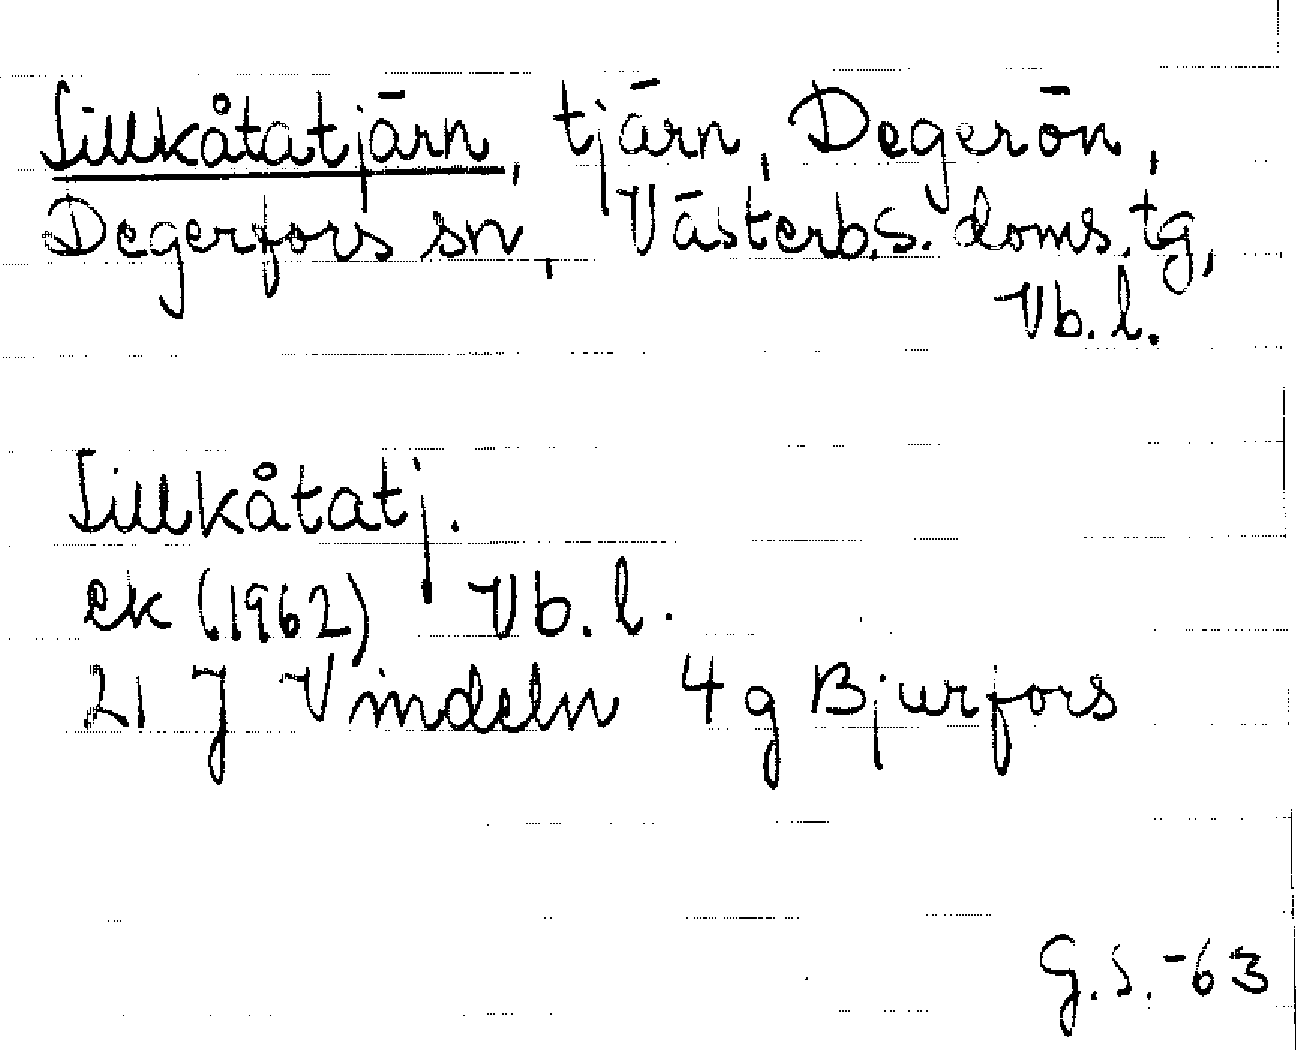 Sillkåtatjärn, tjärn, Degerön,
Degerfors sn, Västerb.s. doms. tg,
Vb. l.
Sillkåtatj.
ek (1962) Vb. l.
21 J Vindeln 4 g Bjurfors
G.S.-63